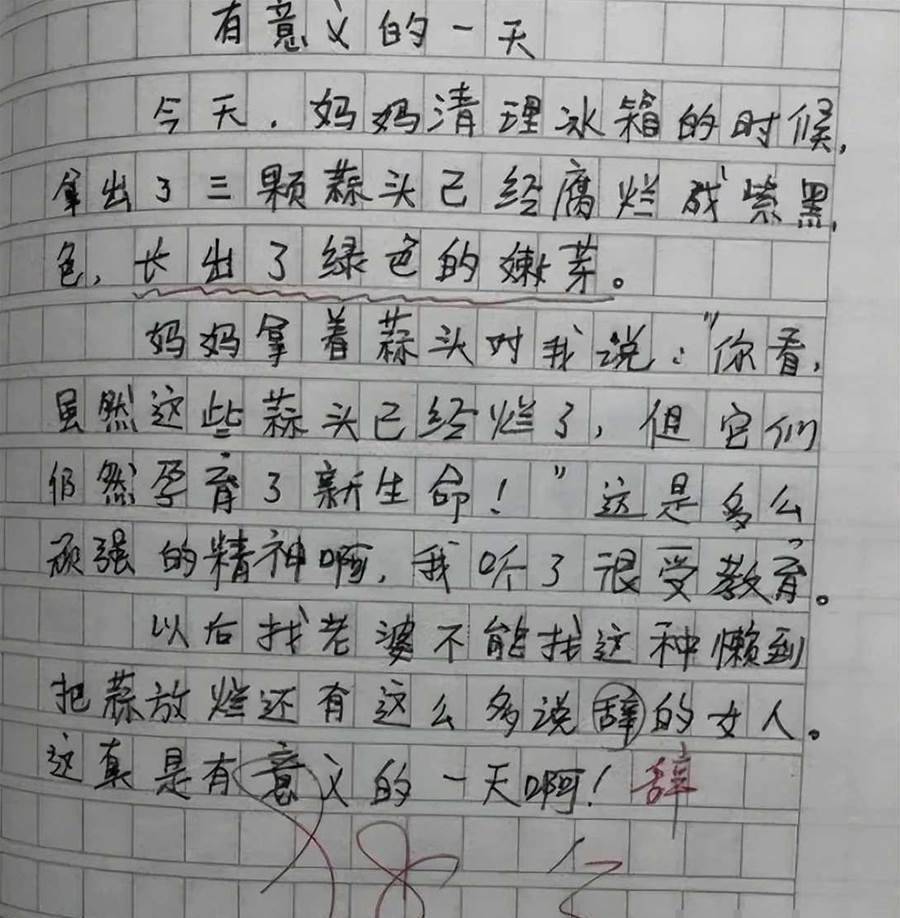 有意义的一天
今天,妈妈清理冰箱的时候,
拿出了三颗蒜头已经腐烂成紫黑
色,长出了绿色的嫩芽。
妈妈拿着蒜头对我说:"你看,
虽然这些蒜头已经烂了,但它们
仍然孕育了新生命!"这是多么
顽强的精神啊,我听了很受教育。
以后找老婆不能找这种懒到
把蒜放烂还有这么多说辞的女人。
这真是有意义的一天啊!辞